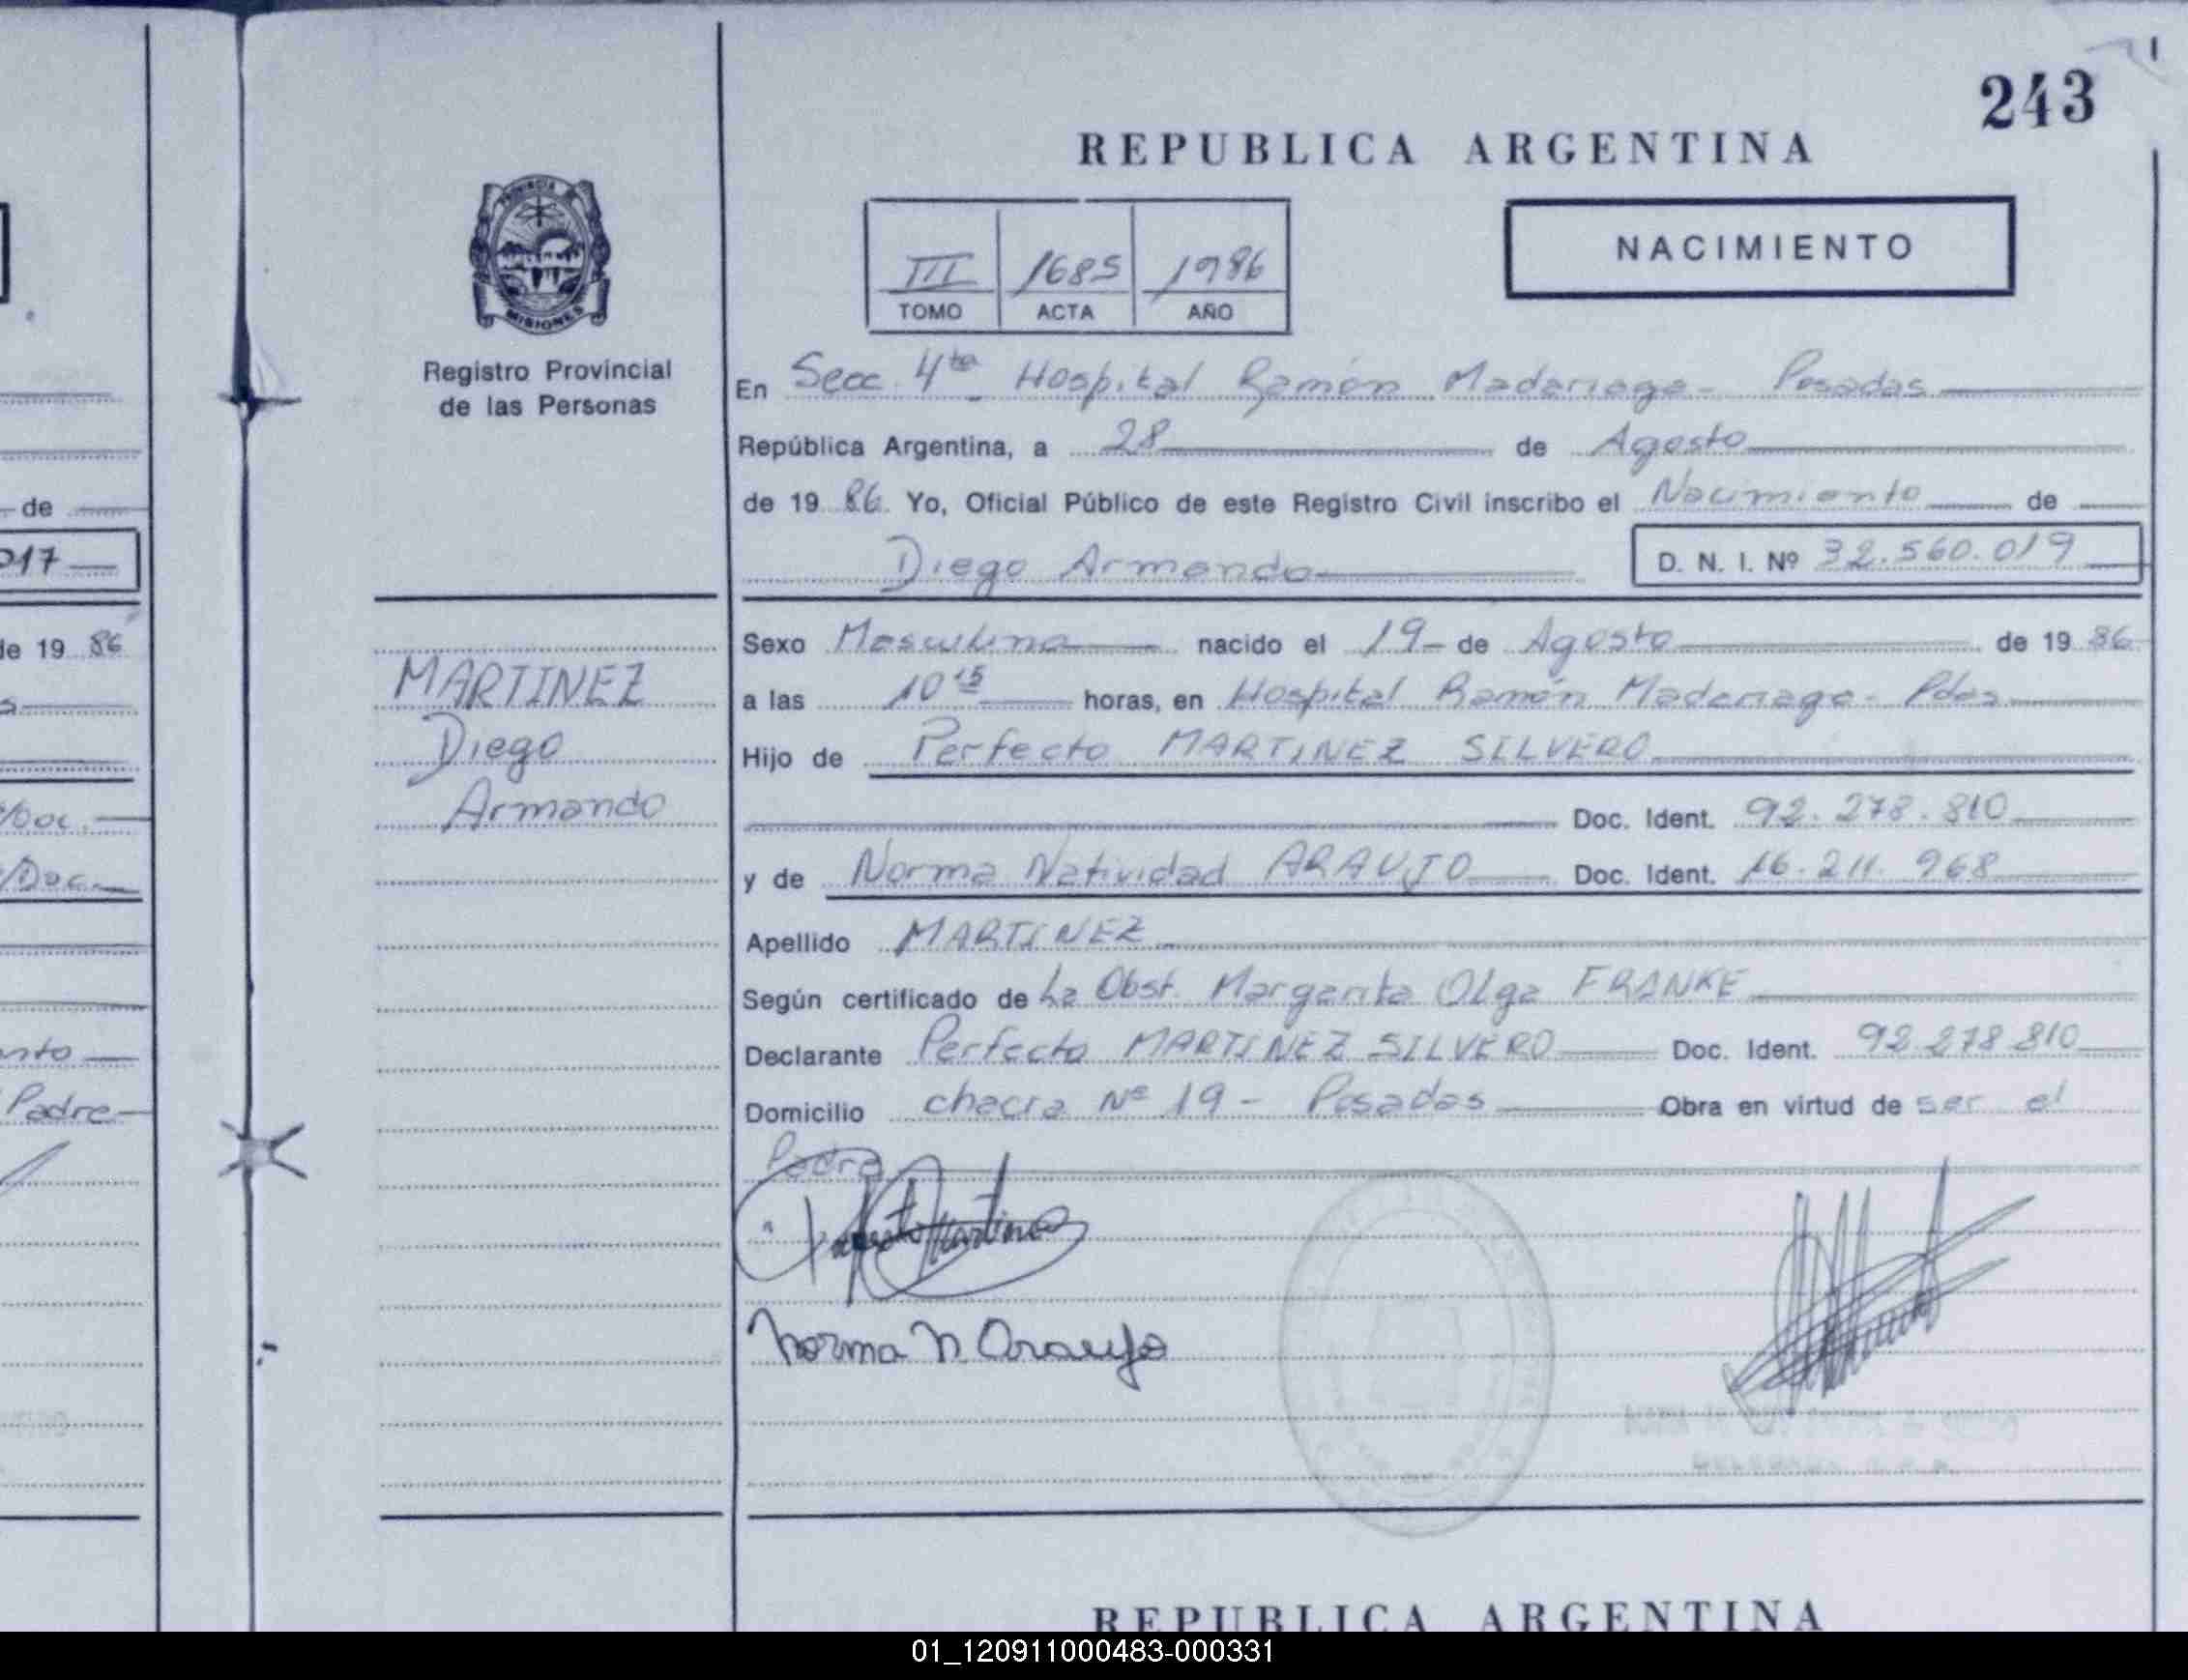 243
REPUBLICA ARGENTINA
PROVINCIA
MISIONES
III 1685 1986
TOMO ACTA AÑO
NACIMIENTO
Registro Provincial
de las Personas
En Secc. 4ta Hospital Ramón Madariaga - Posadas
República Argentina, a 28 de Agosto
de 19 86 Yo, Oficial Público de este Registro Civil inscribo el Nacimiento de
Diego Armando D. N. I. Nº 32.560.019
MARTINEZ
Diego
Armando
Sexo Masculino nacido el 19 de Agosto de 19 86
a las 10 15 horas, en Hospital Ramón Madariaga - Pdas
Hijo de Perfecto MARTINEZ SILVERO
Doc. Ident. 92.278.810
y de Norma Natividad ARAUJO Doc. Ident. 16.211.968
Apellido MARTINEZ
Según certificado de La Obst. Margarita Olga FRANKE
Declarante Perfecto MARTINEZ SILVERO Doc. Ident. 92.278.810
Domicilio chacra Nº 19 - Posadas Obra en virtud de ser el
Padre
Perfecto Martinez
Norma N. Araujo
de
017
de 19 86
/Doc.
/Doc.
Padre
REPUBLICA ARGENTINA
01_120911000483-000331